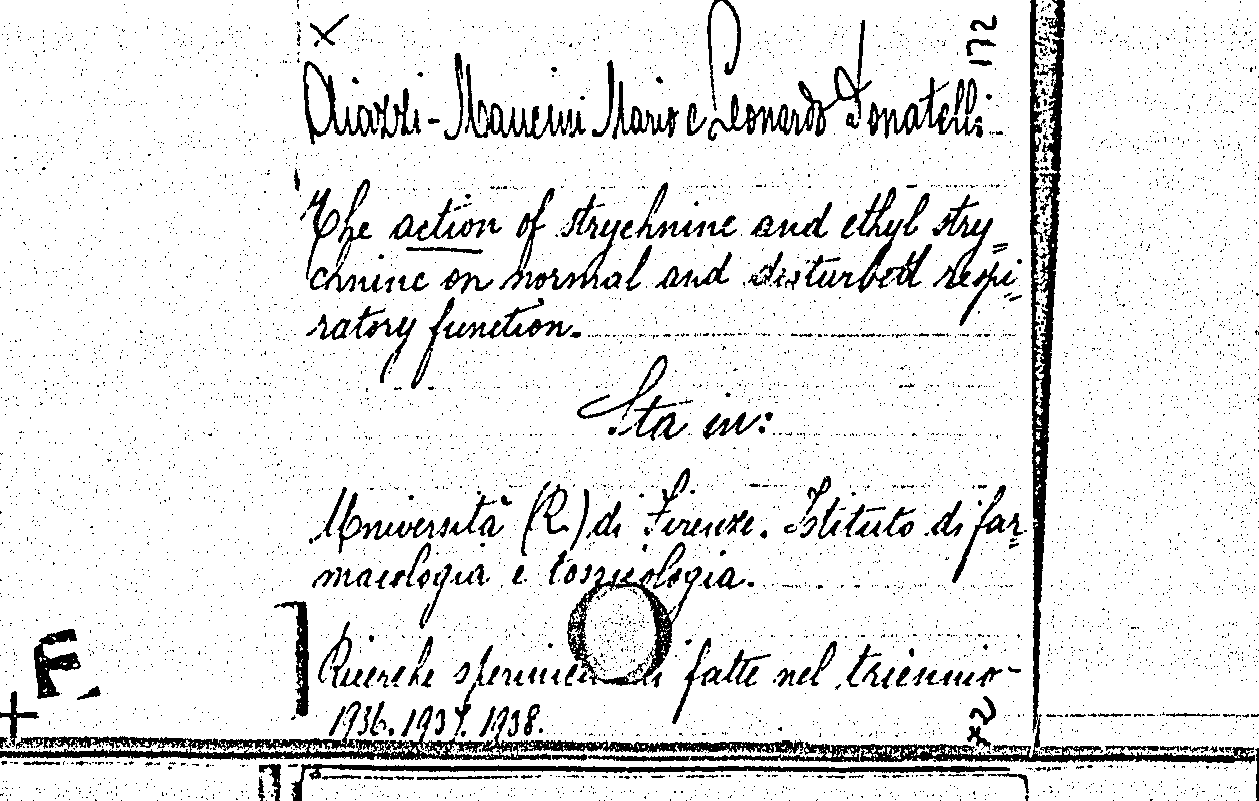 X
172
Aiazzi-Mancini Mario e Leonardo Donatelli.
The action of strychnine and ethyl stry=
chnine on normal and disturbed respi=
ratory function.
Sta in:
Università (R.) di Firenze. Istituto di far=
macologia e tossicologia.
Ricerche fatte nel triennio
1936. 1937. 1938.
F